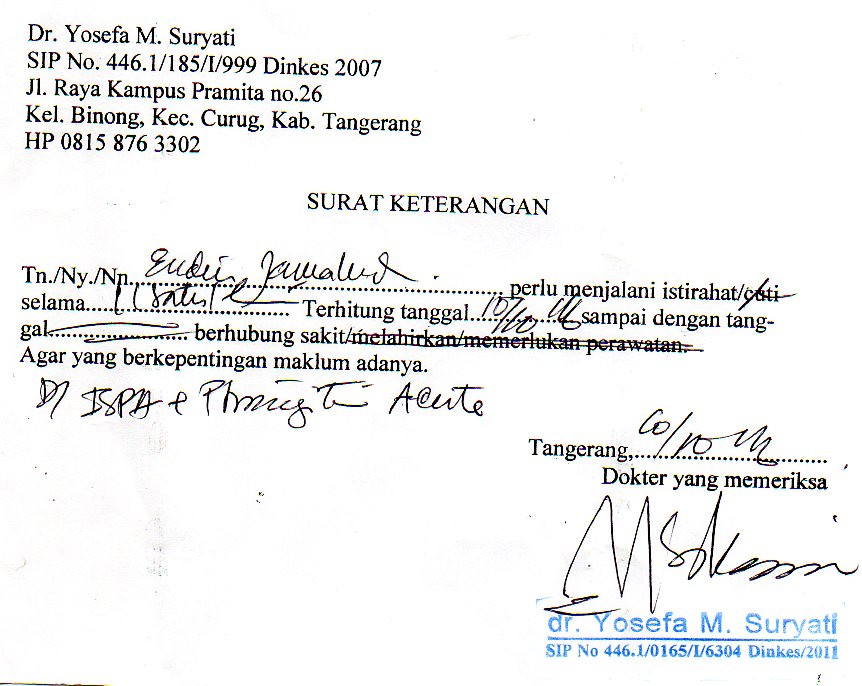 Dr. Yosefa M. Suryati
SIP No. 446.1/185/I/999 Dinkes 2007
Jl. Raya Kampus Pramita no.26
Kel. Binong, Kec. Curug, Kab. Tangerang
HP 0815 876 3302
SURAT KETERANGAN
Tn./Ny./Nn. perlu menjalani istirahat/cuti
selama 1 (satu) Terhitung tanggal sampai dengan tang-
gal berhubung sakit/melahirkan/memerlukan perawatan.
Agar yang berkepentingan maklum adanya.
D/ ISPA + Acute
Tangerang,
Dokter yang memeriksa
dr. Yosefa M. Suryati
SIP No 446.1/0165/I/6304 Dinkes/2011